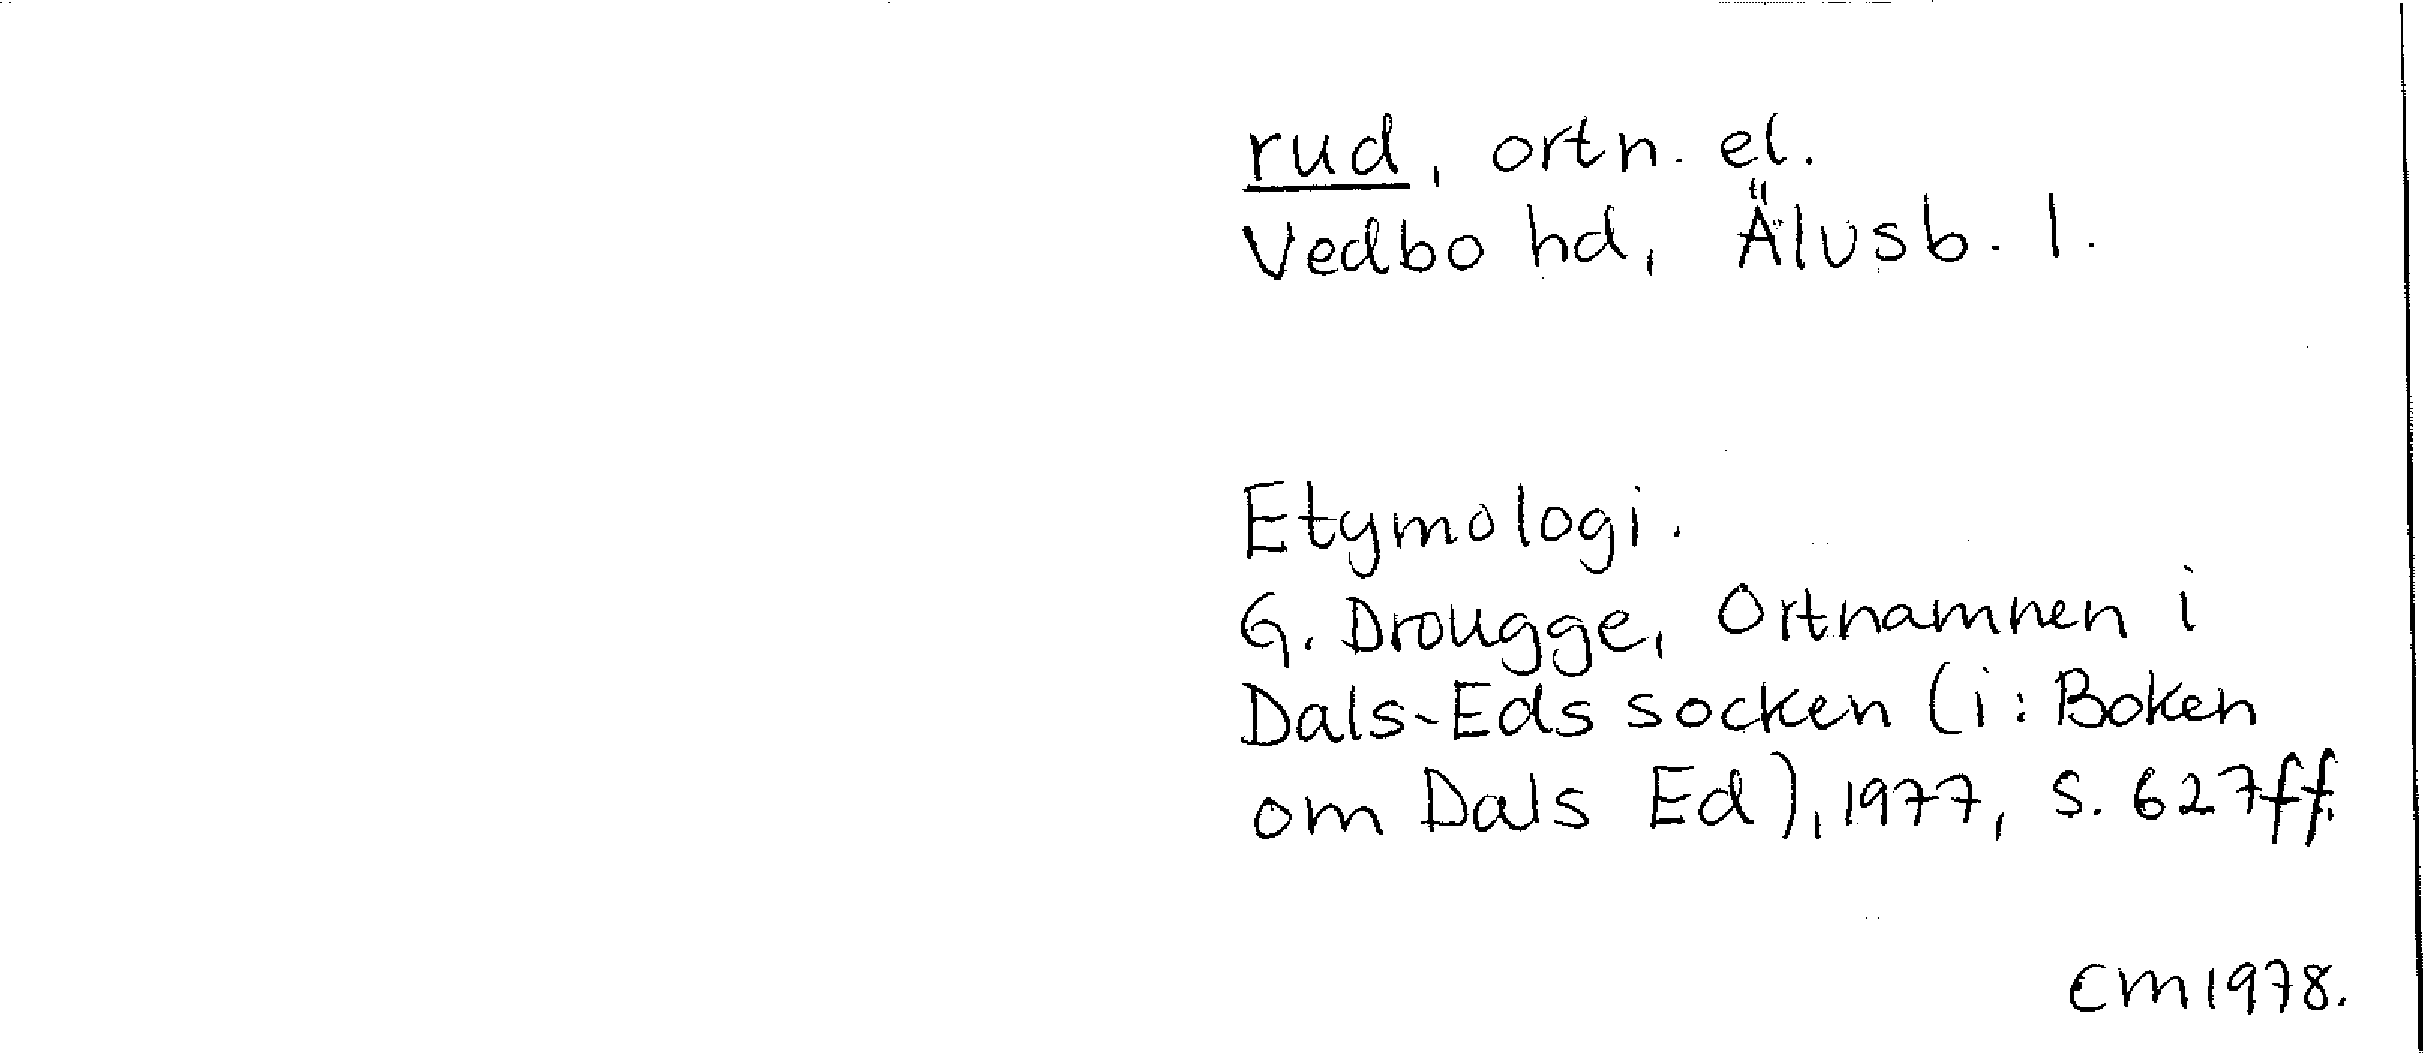 rud, ortn. el.
Vedbo hd, Älvsb. l.
Etymologi.
G. Drougge, Ortnamnen i
Dals-Eds socken (i: Boken
om Dals Ed), 1977, s. 627ff.
CM 1978.